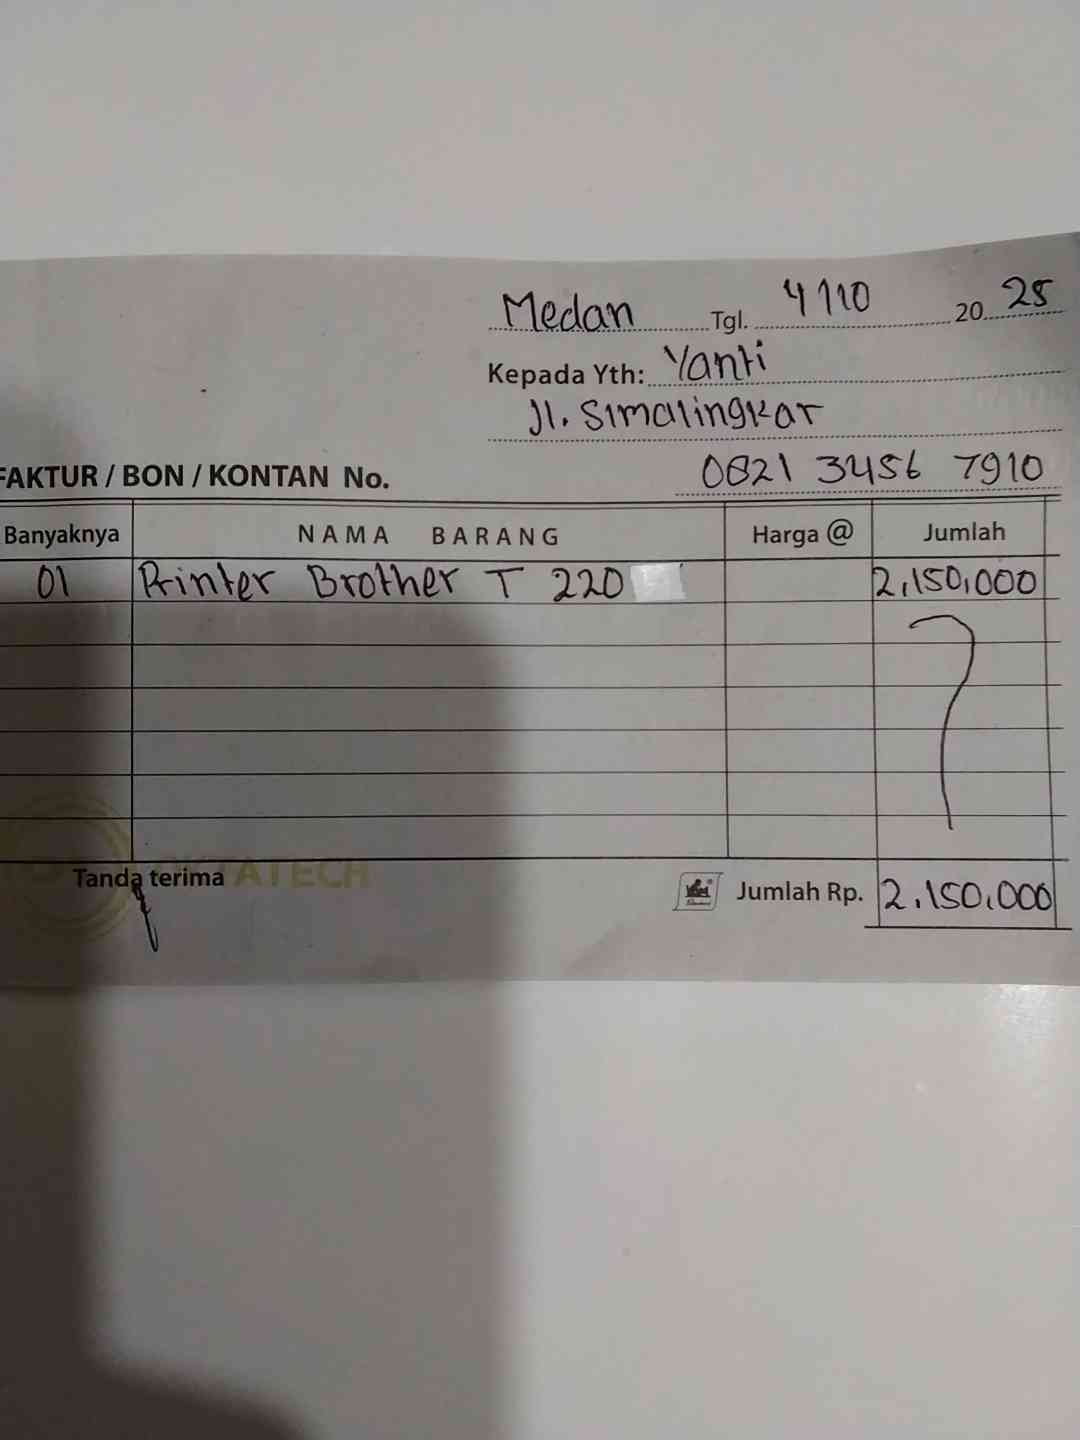 Medan Tgl. 4/10 2025
Kepada Yth: Yanti
Jl. Simalingkar
FAKTUR / BON / KONTAN No. 0821 3456 7910
Banyaknya NAMA BARANG Harga @ Jumlah
01 Printer Brother T 220 2,150,000
Tanda terima ATECH Jumlah Rp. 2.150.000